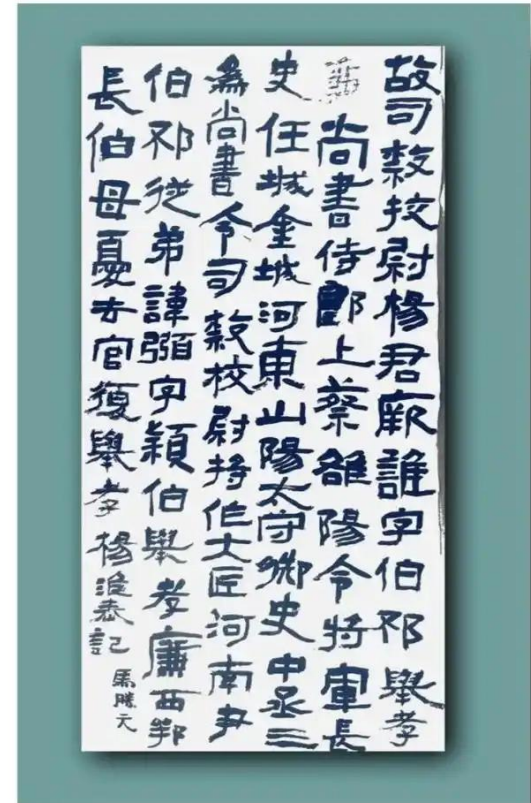 故司隸挍尉楊君厥誰字伯邳舉孝
廉尚書侍郎上蔡雒陽令將軍長
史任城金城河東山陽太守御史中丞三
為尚書令司隸校尉將作大匠河南尹
伯邳從弟諱弼字穎伯舉孝廉西鄂
長伯母憂去官復舉孝 楊淮表記
馬勝元